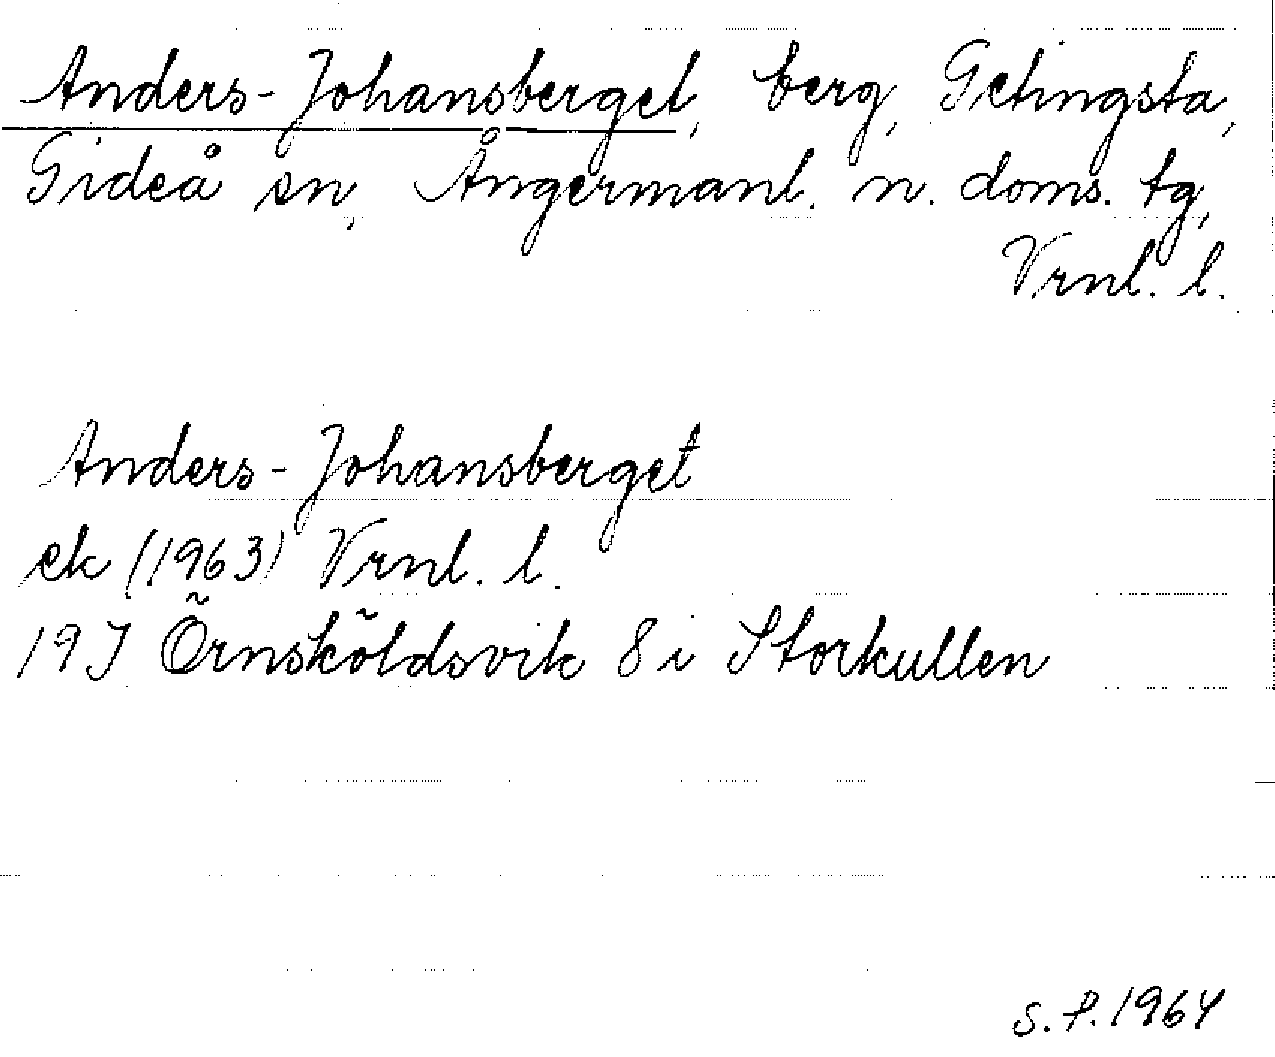 Anders-Johansberget, berg, Getingsta,
Gideå sn, Ångermanl. n. doms. tg,
Vrnl. l.
Anders-Johansberget
ek (1963) Vrnl. l.
19J Örnsköldsvik 8 i Storkullen
S. P. 1964